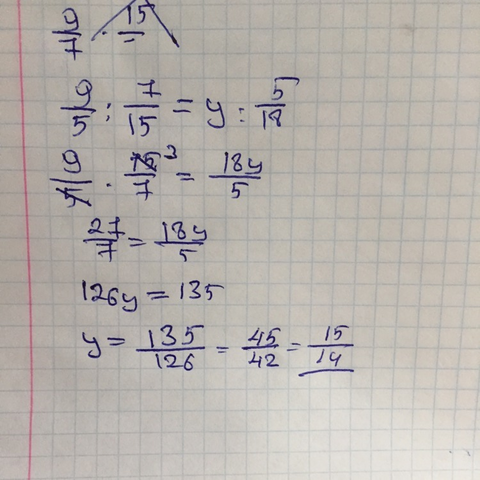 9/7 · 15
9/5 : 7/15 = y : 5/18
9/5 · 15 3/7 = 18y/5
27/7 = 18y/5
126y = 135
y = 135/126 = 45/42 = 15/14